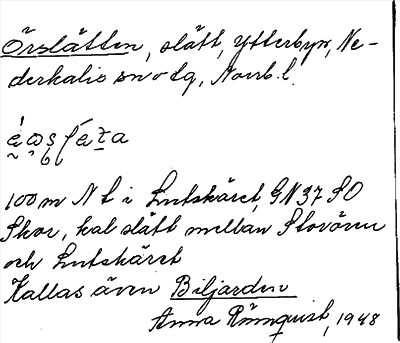 Örslätten, slätt, Ytterbyn, Ne-
derkalix sn o tg, Norrb. l.
100 m N t i Lutskäret, GN 37 SO
Skor, kal slätt mellan Storören
och Lutskäret
Kallas även Biljarden
Anna Rönnquist, 1948